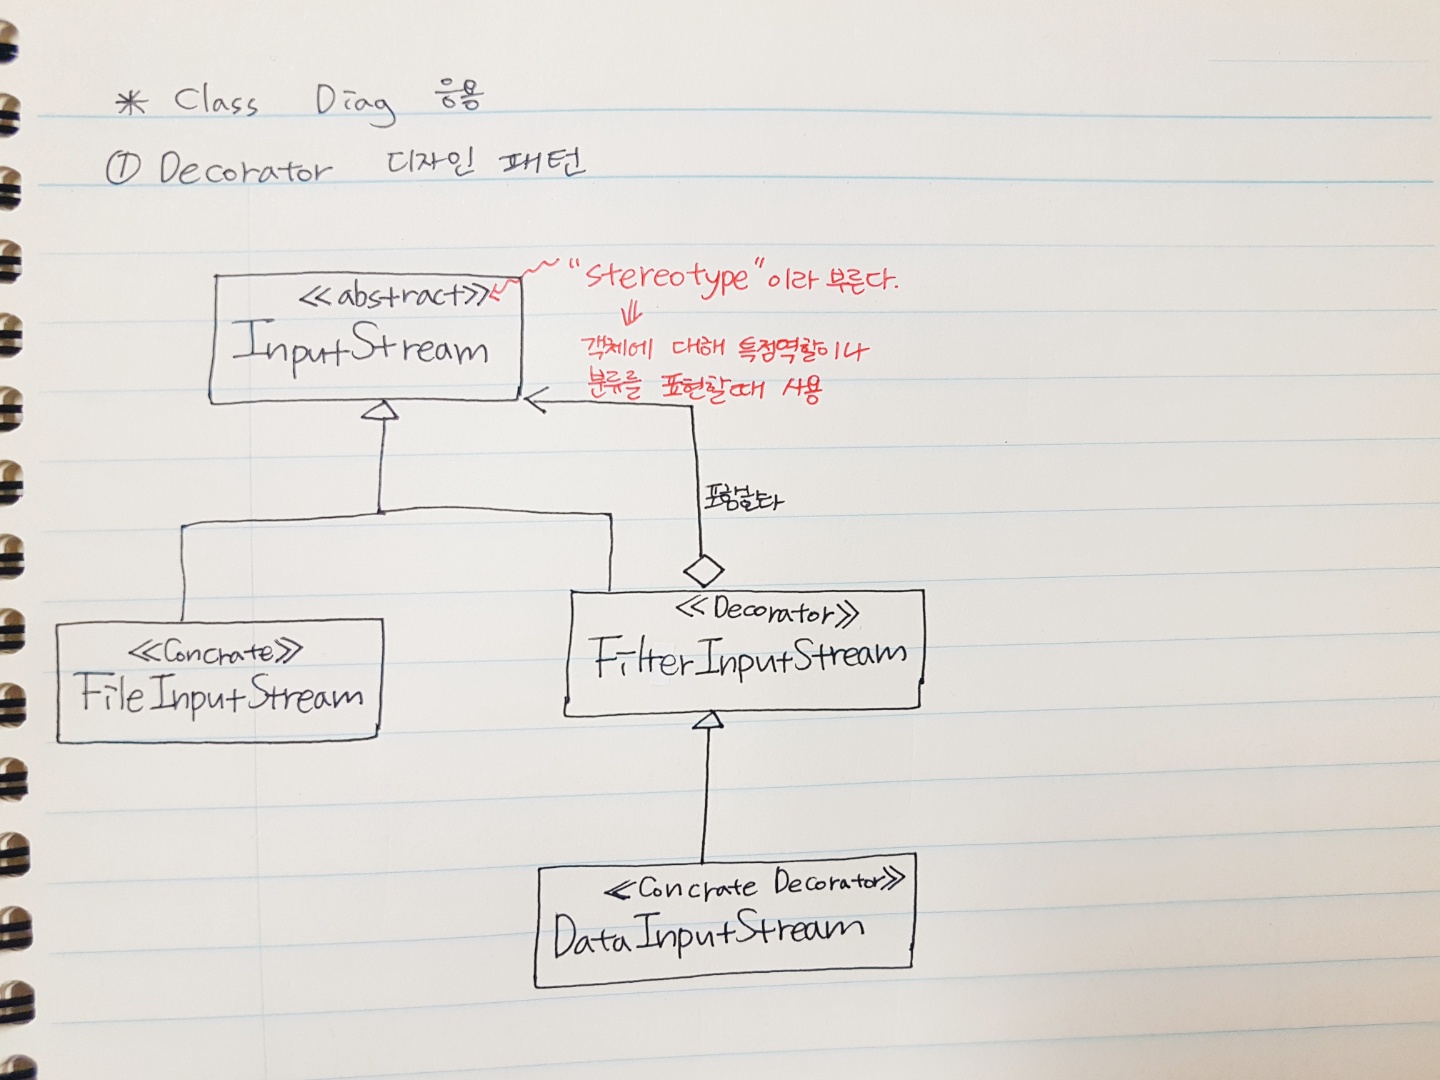 * Class Diag 응용
① Decorator 디자인 패턴
≪abstract≫
InputStream
"stereotype"이라 부른다.
객체에 대해 특정역할이나
분류를 표현할때 사용
포함한다
≪Concrate≫
FileInputStream
≪Decorator≫
FilterInputStream
≪Concrate Decorator≫
DataInputStream